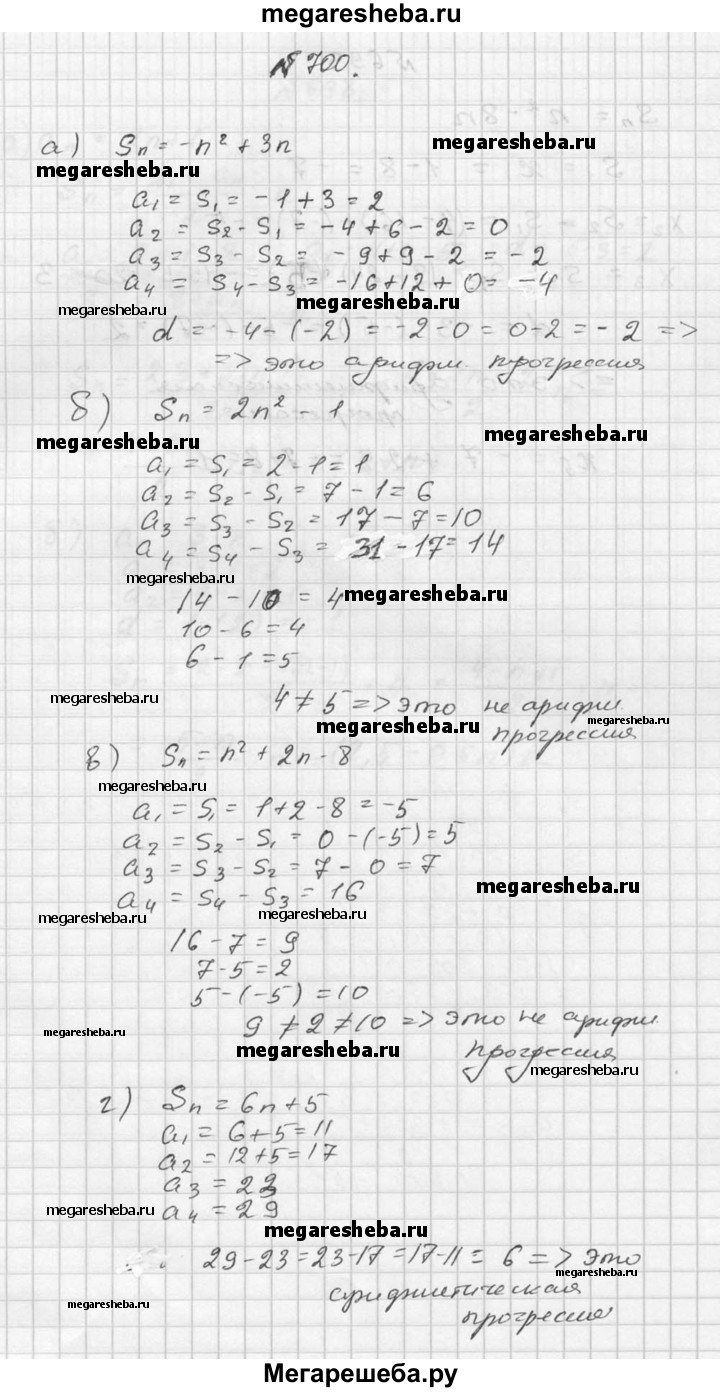 megaresheba.ru
№ 700.
а) Sn = -n² + 3n
megaresheba.ru
megaresheba.ru
a₁ = S₁ = -1 + 3 = 2
a₂ = S₂ - S₁ = -4 + 6 - 2 = 0
a₃ = S₃ - S₂ = -9 + 9 - 2 = -2
a₄ = S₄ - S₃ = -16 + 12 + 0 = -4
megaresheba.ru
megaresheba.ru
d = -4 - (-2) = -2 - 0 = 0 - 2 = -2 =>
=> это арифм. прогрессия
б) Sn = 2n² - 1
megaresheba.ru
megaresheba.ru
a₁ = S₁ = 2 - 1 = 1
a₂ = S₂ - S₁ = 7 - 1 = 6
a₃ = S₃ - S₂ = 17 - 7 = 10
a₄ = S₄ - S₃ = 31 - 17 = 14
megaresheba.ru
14 - 10 = 4
megaresheba.ru
10 - 6 = 4
6 - 1 = 5
megaresheba.ru
4 ≠ 5 => это не арифм.
megaresheba.ru
megaresheba.ru
прогрессия
в) Sn = n² + 2n - 8
megaresheba.ru
a₁ = S₁ = 1 + 2 - 8 = -5
a₂ = S₂ - S₁ = 0 - (-5) = 5
a₃ = S₃ - S₂ = 7 - 0 = 7
a₄ = S₄ - S₃ = 16
megaresheba.ru
megaresheba.ru
megaresheba.ru
16 - 7 = 9
7 - 5 = 2
5 - (-5) = 10
9 ≠ 2 ≠ 10 => это не арифм.
megaresheba.ru
megaresheba.ru
прогрессия
megaresheba.ru
г) Sn = 6n + 5
a₁ = 6 + 5 = 11
a₂ = 12 + 5 = 17
a₃ = 23
a₄ = 29
megaresheba.ru
megaresheba.ru
29 - 23 = 23 - 17 = 17 - 11 = 6 => это
megaresheba.ru
арифметическая
megaresheba.ru
прогрессия
Мегарешеба.ру